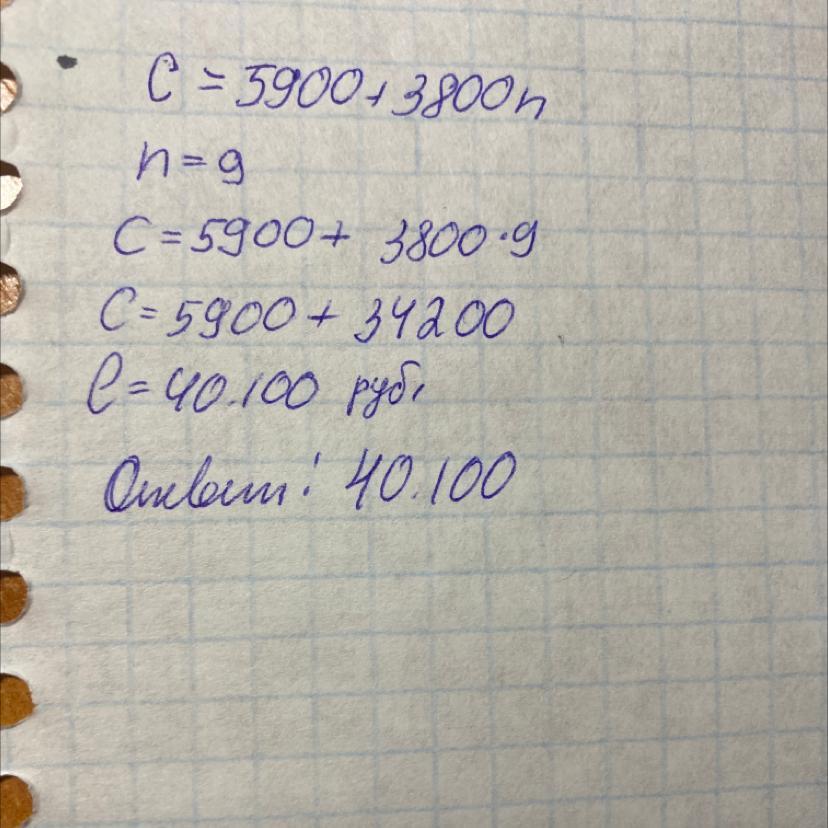 C = 5900 + 3800n
n = 9
C = 5900 + 3800 · 9
C = 5900 + 34200
C = 40.100 руб.
Ответ: 40.100